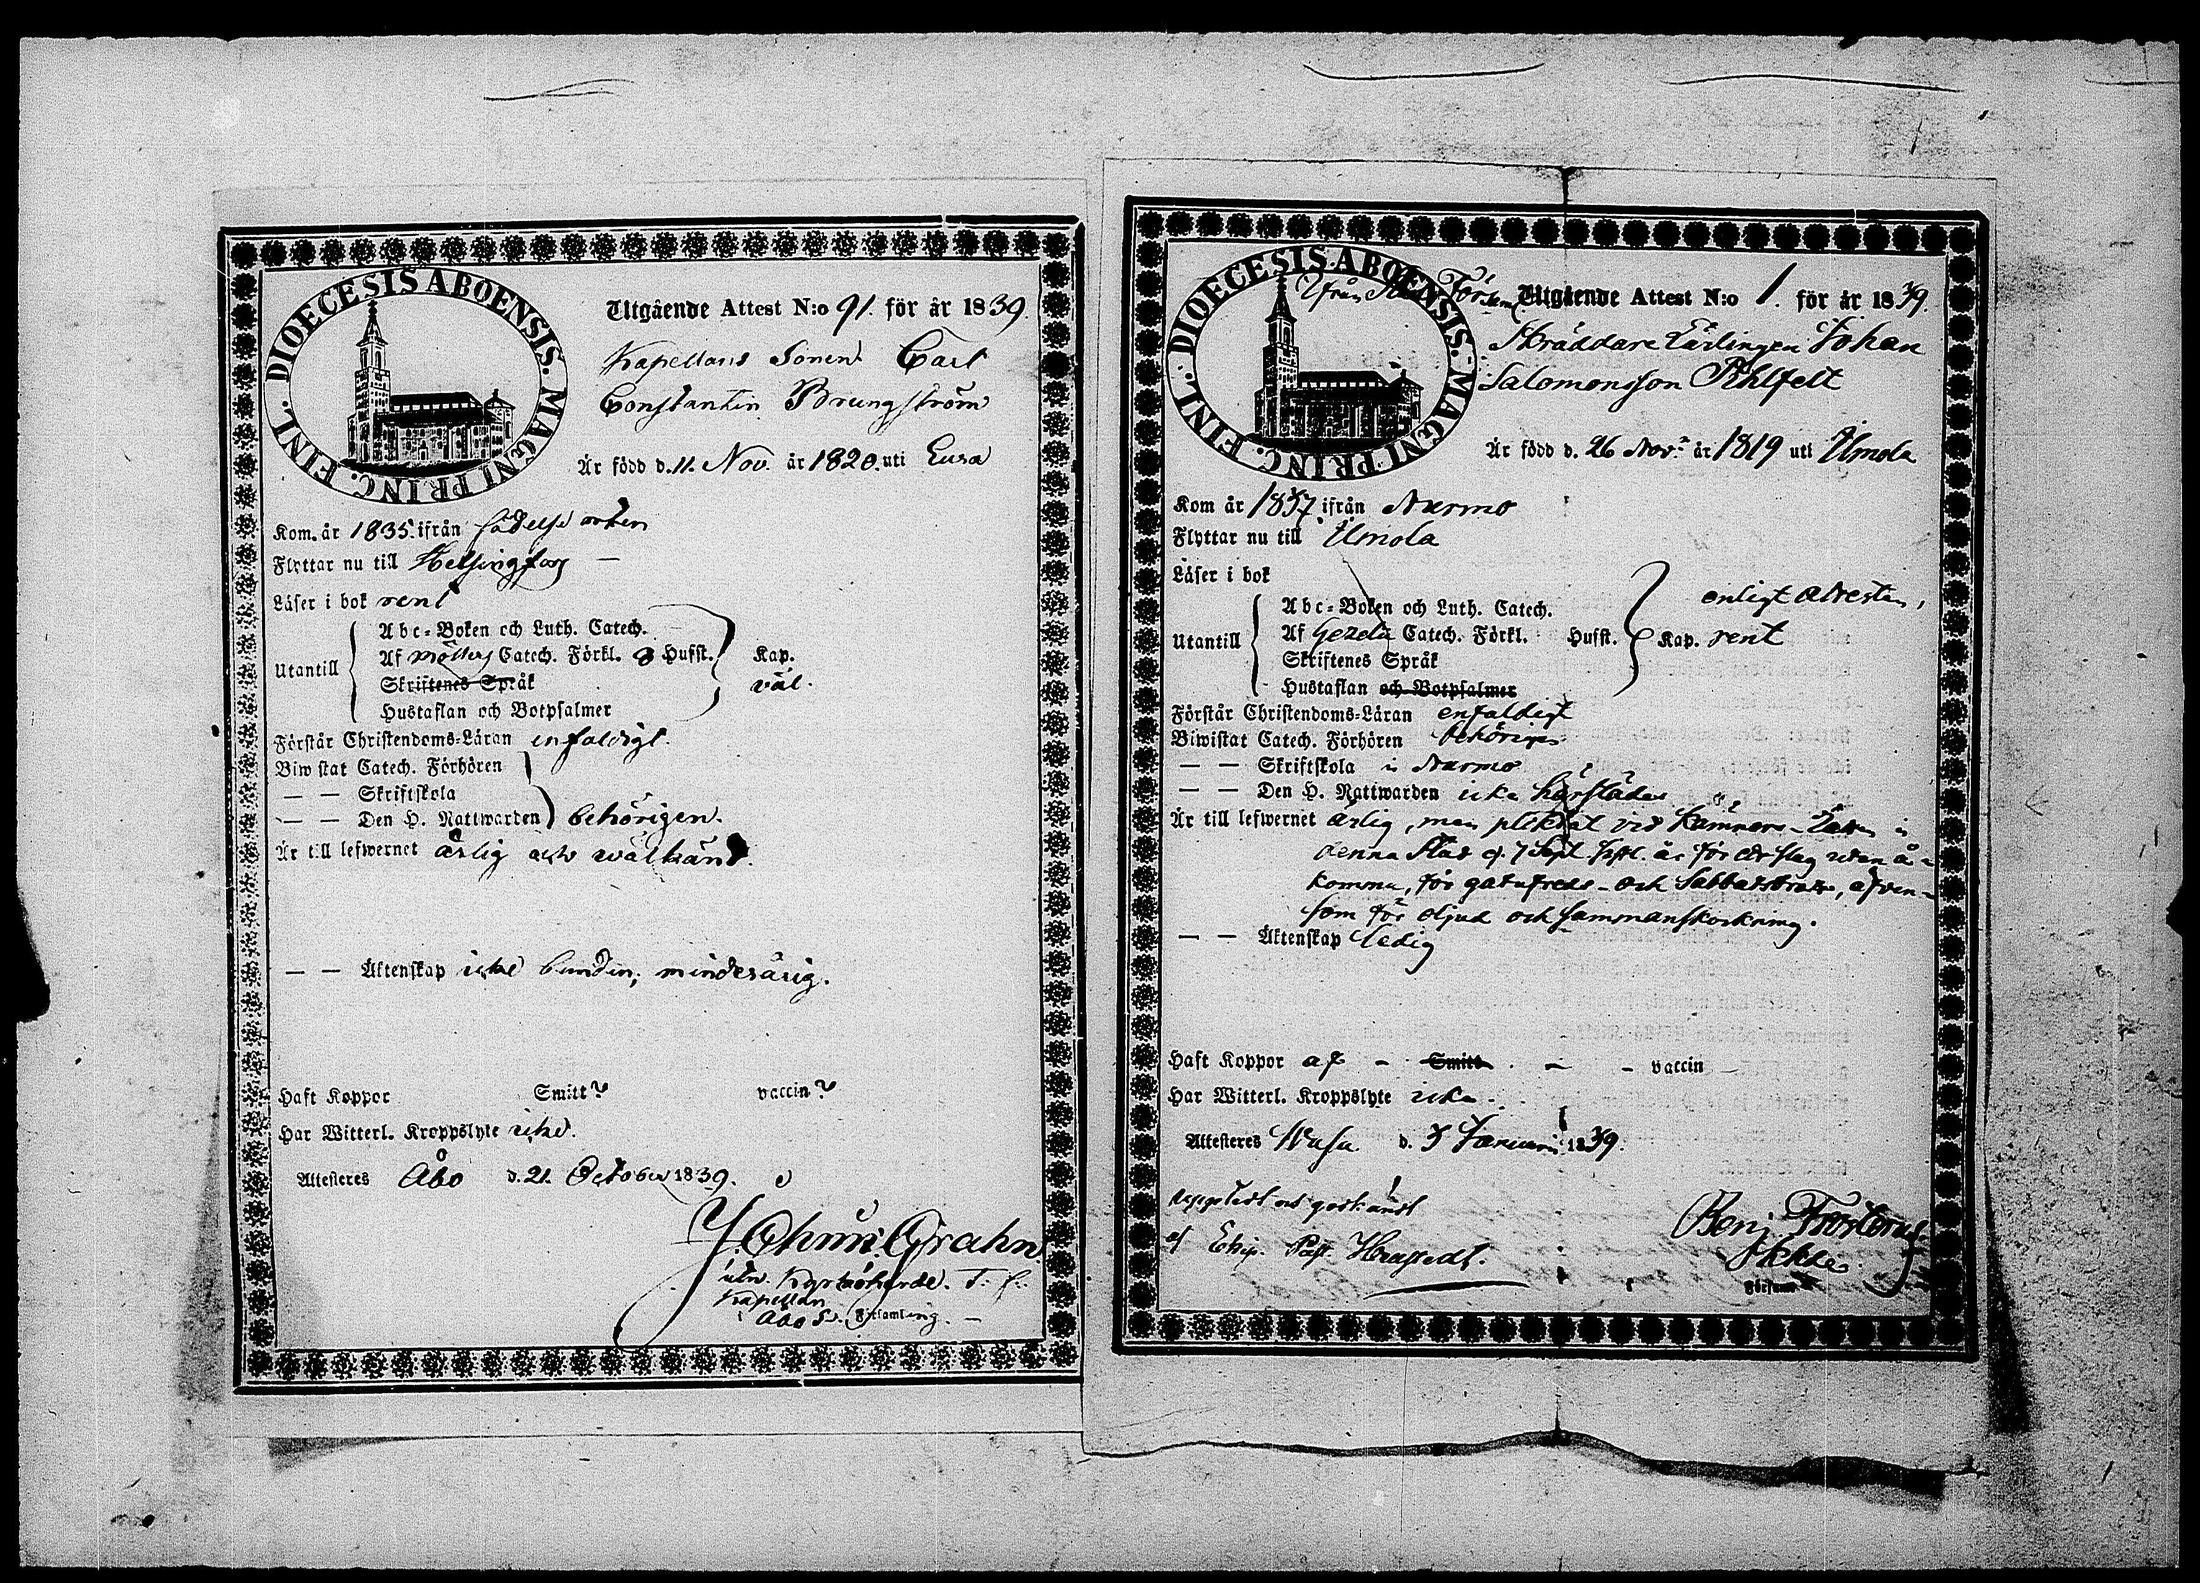 DIOECESIS ABOENSIS. MAGNI PRINC. FINL.
Utgående Attest N:o 91. för år 1839.
Kapellans Sonen Carl
Constantin Brungström
Är född d. 11. Nov. år 1820. uti Eura
Kom. år 1835. ifrån födelse orten
Flyttar nu till Helsingfors —
Läser i bok rent
Abc-Boken och Luth. Catech.
Utantill Af Möllers Catech. Förkl. 8 Hufst. Kap.
Skriftenes Språk väl.
Hustaflan och Botpsalmer
Förstår Christendoms-Läran enfaldigt.
Biwistat Catech. Förhören
— — Skriftskola
— — Den H. Nattwarden behörigen.
Är till lefwernet ärlig och wälkänd.
— — Äktenskap icke bunden; minderårig.
Haft Koppor Smitt? vaccin?
Har Witterl. Kroppslyte icke.
Attesteres Åbo d. 21. October 1839.
Grahn
Kapellan
Åbo S. Församling. —
DIOECESIS ABOENSIS. MAGNI PRINC. FINL.
Utgående Attest N:o 1. för år 1839.
Skräddare Lärlingen Johan
Salomonsson Ahlfelt
Är född d. 26 Nov. år 1819 uti Ilmola
Kom år 1837 ifrån Nurmo
Flyttar nu till Ilmola
Läser i bok
Abc-Boken och Luth. Catech. enligt attesten,
Utantill Af Gezelii Catech. Förkl. Hufst. Kap. rent
Skriftenes Språk
Hustaflan och Botpsalmer
Förstår Christendoms-Läran enfaldigt
Biwistat Catech. Förhören behörigen
— — Skriftskola i Nurmo
— — Den H. Nattwarden icke härstädes
Är till lefwernet ärlig, men pliktat vid Kämners-Rätten i
denna Stad d. 7 Sept. sistl. år för ett slag utan å-
komma, för gatufreds- och Sabbatsbrott, äfven-
som för oljud och sammanskockning.
— — Äktenskap ledig
Haft Koppor af - Smitt — - vaccin —
Har Witterl. Kroppslyte icke.
Attesteres Wasa d. 3 Januari 1839.
uppvist och godkändt
af Benj. Frosterus
Församl